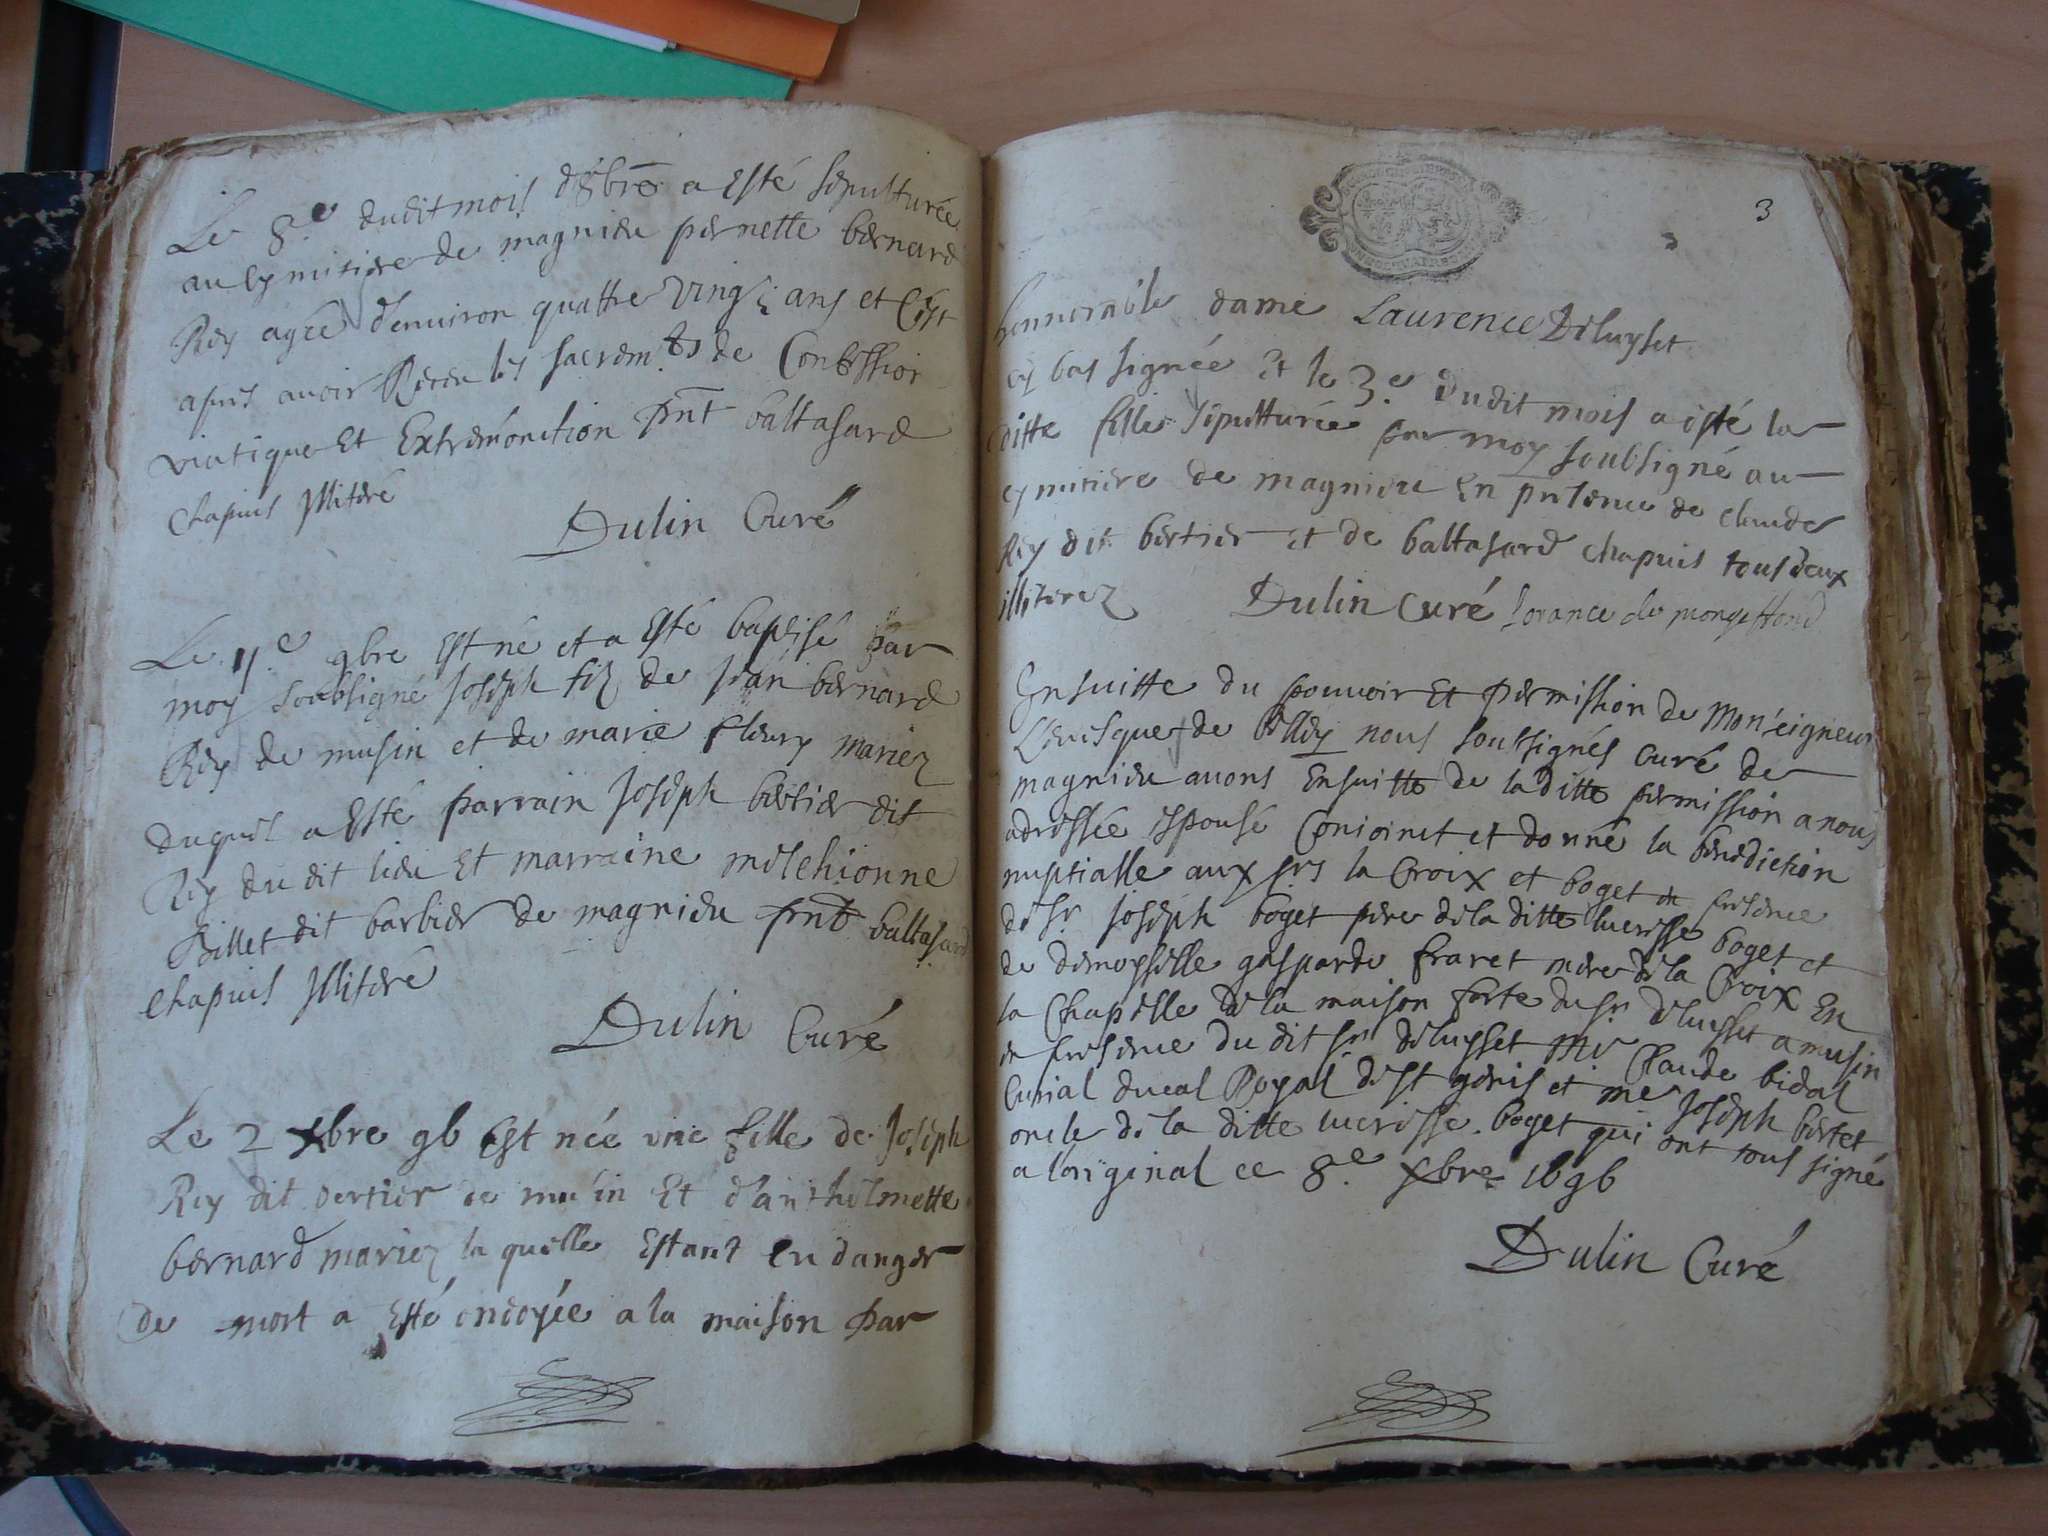 Le 8e dudit mois d'8bre a esté sepulturée
au cymitiere de magnieu pernette bernard
Rey agée d'enuiron quattre vingt ans et
apres auoir Receu les sacremts de Confession
viatique Et Extremonction pnt baltasard
chapuis Illiteré
Dulin Curé
Le 9bre est né et a esté baptisé par
moy soubsigné Joseph filz de Jean bernard
Rey de musin et de marie fleury mariez
duquel a esté parrain Joseph bertier dit
Rey du dit lieu Et marraine melchionne
Billet dit barbier de magnieu pnt baltasard
chapuis Illiteré
Dulin Curé
Le 2 xbre 96 Est née vne fille de Joseph
Rey dit bertier de musin Et d'anthelmette
bernard mariez la quelle estant en danger
de mort a esté ondoyée a la maison par
3
honnorable dame Laurence Deluyset
cy bas signée Et le 3e dudit mois a esté la
ditte fille sepulturée par moy soubsigné au
cymitiere de magnieu En presence de claude
Rey dit bertier et de baltasard chapuis tous deux
illiterez Dulin Curé lorance de
Ensuitte du pouuoir Et permission de Monseigneur
L'euesque de belley nous soussignés curé de
magnieu auons Ensuitte de la ditte permission a nous
adressée espousé Conioinct et donné la benediction
nuptialle aux srs la Croix et boget en presence
de sr Joseph boget pere de la ditte lucresse boget et
de demoyselle gasparde fraret mere de la Croix En
la Chapelle de la maison forte du sr deluyset a musin
en presence du dit sr deluysset Mr Claude bidal
Curial ducal Royal de st genis et me Joseph bertet
oncle de la ditte lucresse boget qui ont tous signé
a l'original ce 8e xbre 1696
Dulin Curé